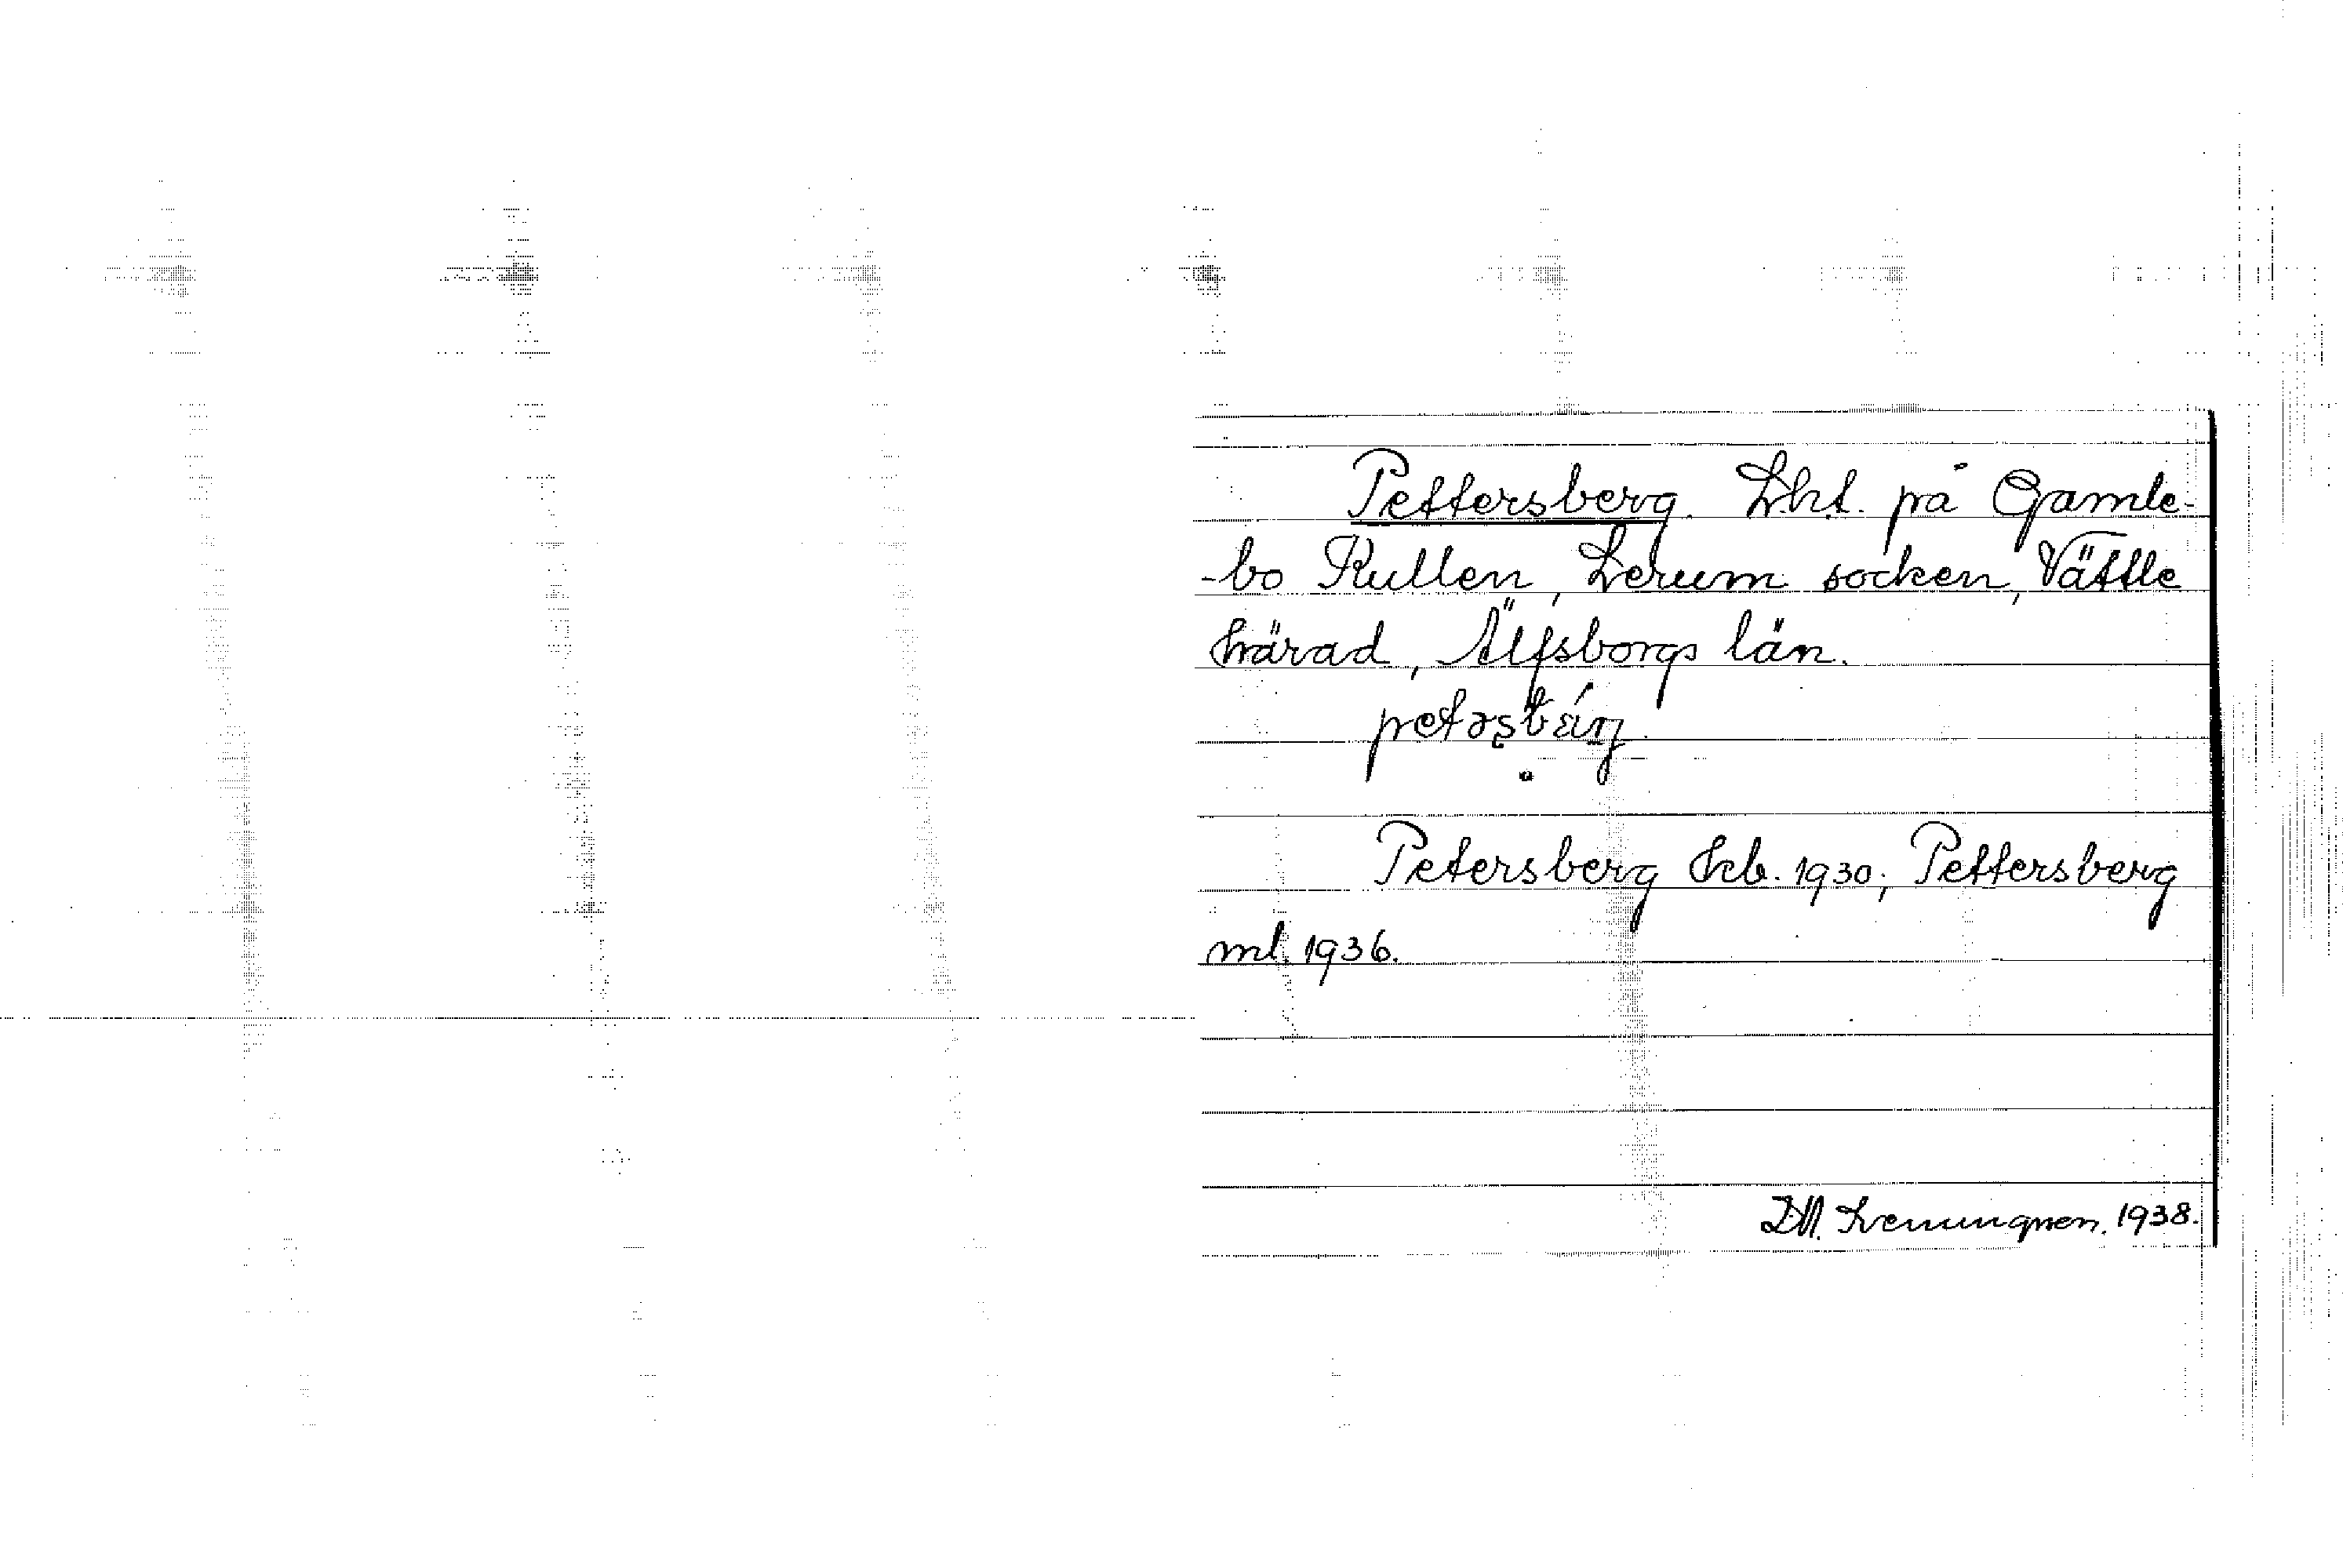 Pettersberg. Lht. på Gamle-
-bo Kullen, Lerum socken, Vättle
härad, Älfsborgs län.
Petersberg hfb. 1930; Pettersberg
ml. 1936.
1938.